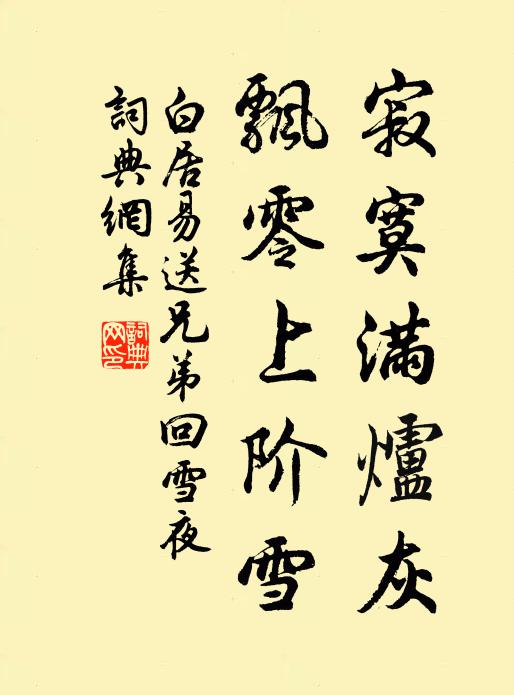 寂寞满爐灰
飘零上阶雪
白居易送兄弟回雪夜
詞典網集
詞典網印